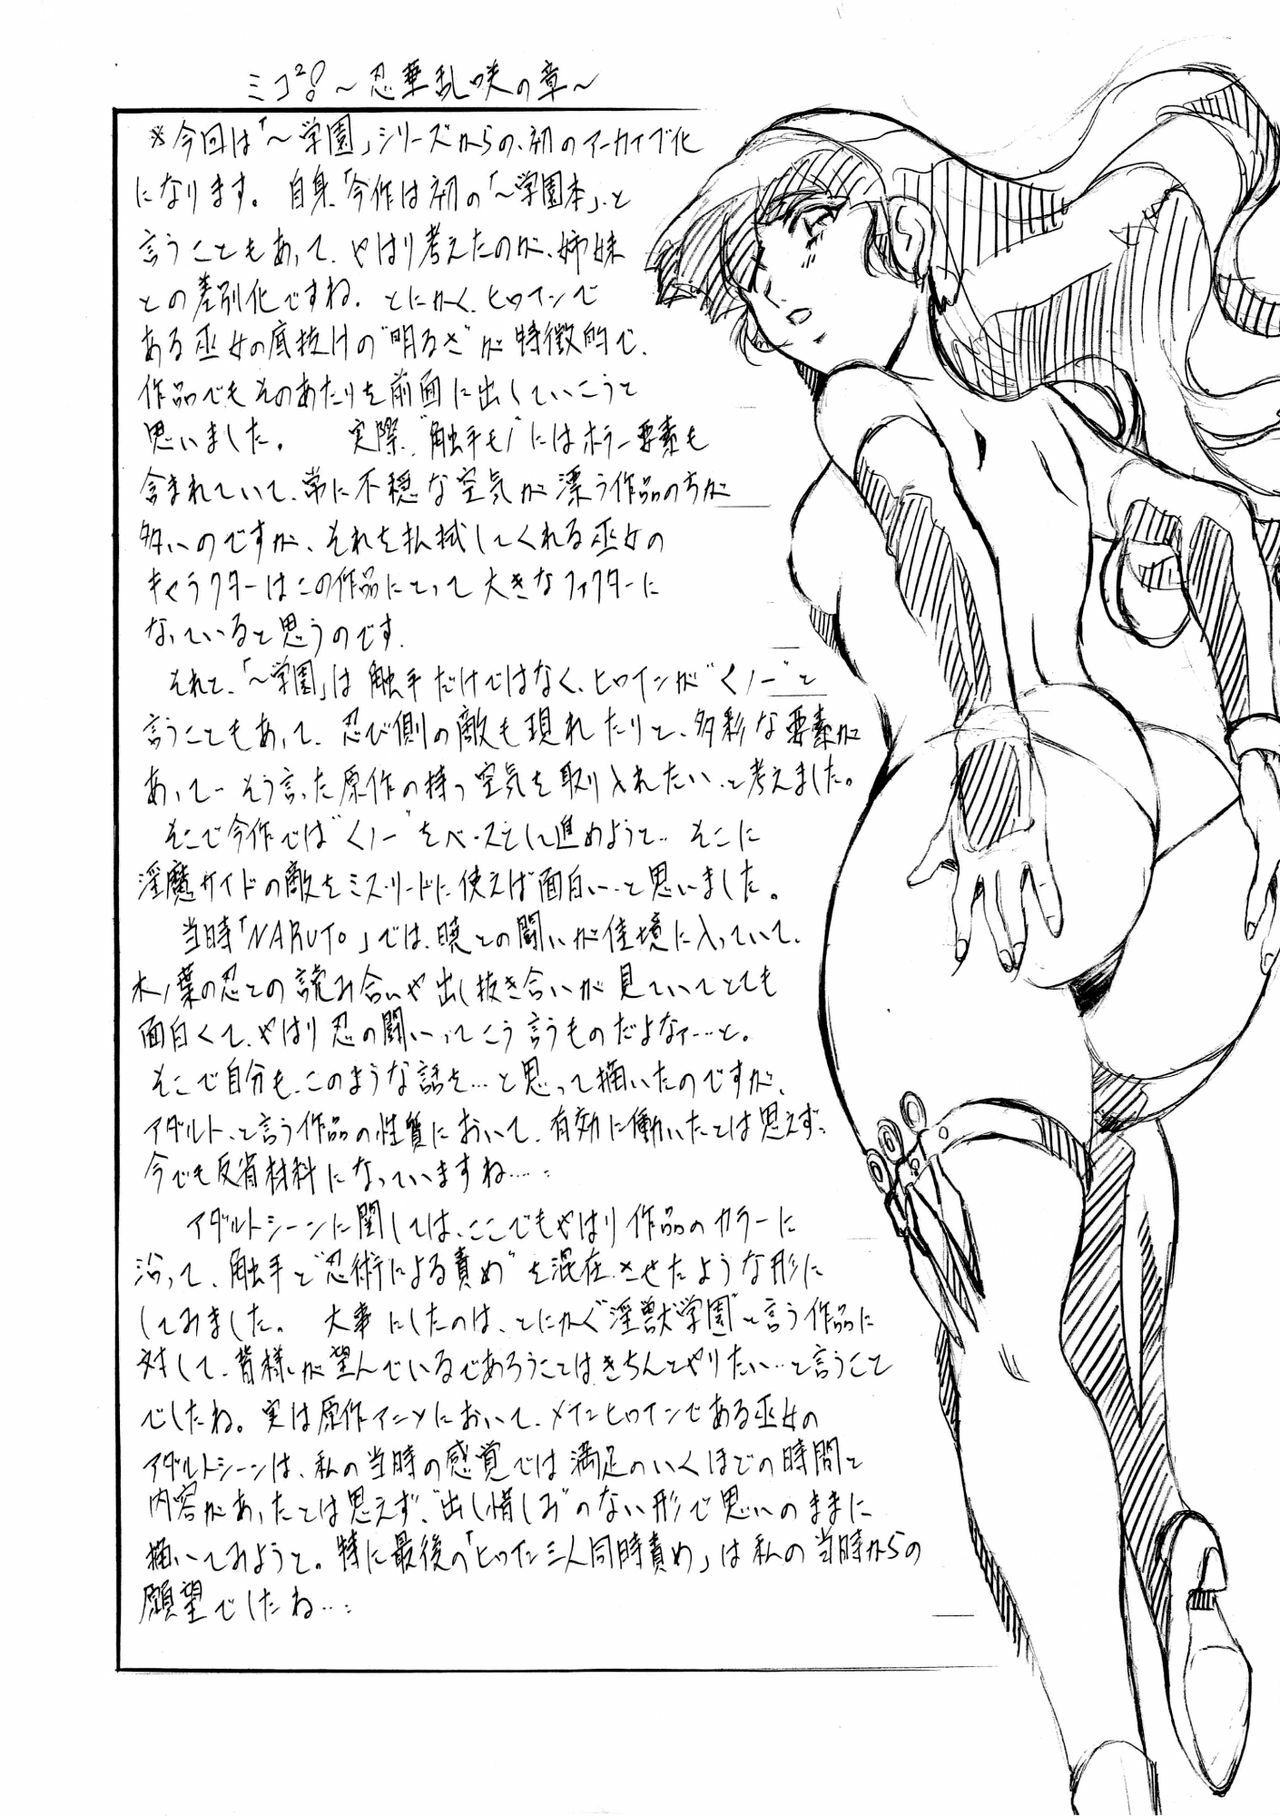 ミコ²!〜忍華乱咲の章〜
※今回は「〜学園」シリーズからの、初のアーカイブ化
になります。 自身、今作は初の「〜学園本」、と
言うこともあって、やはり考えたのが、姉妹
との差別化ですね。とにかく、ヒロインで
ある巫女の底抜けの"明るさ"が特徴的で、
作品でもそのあたりを前面に出していこうと
思いました。 実際、"触手モノ"にはホラー要素も
含まれていて、常に不穏な空気が漂う作品の方が
多いのですが、それを払拭してくれる巫女の
キャラクターはこの作品にとって大きなファクターに
なっていると思うのです。
それと、「〜学園」は触手だけではなく、ヒロインが"くノ一"と
言うこともあって、忍び側の敵も現れたりと、多彩な要素が
あって…そう言った原作の持つ空気を取り入れたい、と考えました。
そこで今作では"くノ一"をベースとして進めようと… そこに
淫魔サイドの敵をミスリードに使えば面白い…と思いました。
当時「NARUTO」では、暁との闘いが佳境に入っていて、
木ノ葉の忍との読み合いや出し抜き合いが見ていてとても
面白くて、やはり忍の闘いってこう言うものだよなァ…と。
そこで自分も、このような話を…と思って描いたのですが、
アダルト、と言う作品の性質において、有効に働いたとは思えず…
今でも反省材料になっていますね…。:
アダルトシーンに関しては、ここでもやはり作品のカラーに
沿って、触手と"忍術による責め"を混在させたような形に
してみました。 大事にしたのは、とにかく"淫獣学園"と言う作品に
対して、皆様が望んでいるであろうことはきちんとやりたい…と言うこと
でしたね。実は原作アニメにおいて、メインヒロインである巫女の
アダルトシーンは、私の当時の感覚では満足のいくほどの時間と
内容があったとは思えず、"出し惜しみ"のない形で思いのままに
描いてみようと。特に最後の「ヒロイン三人同時責め」は私の当時からの
願望でしたね…: